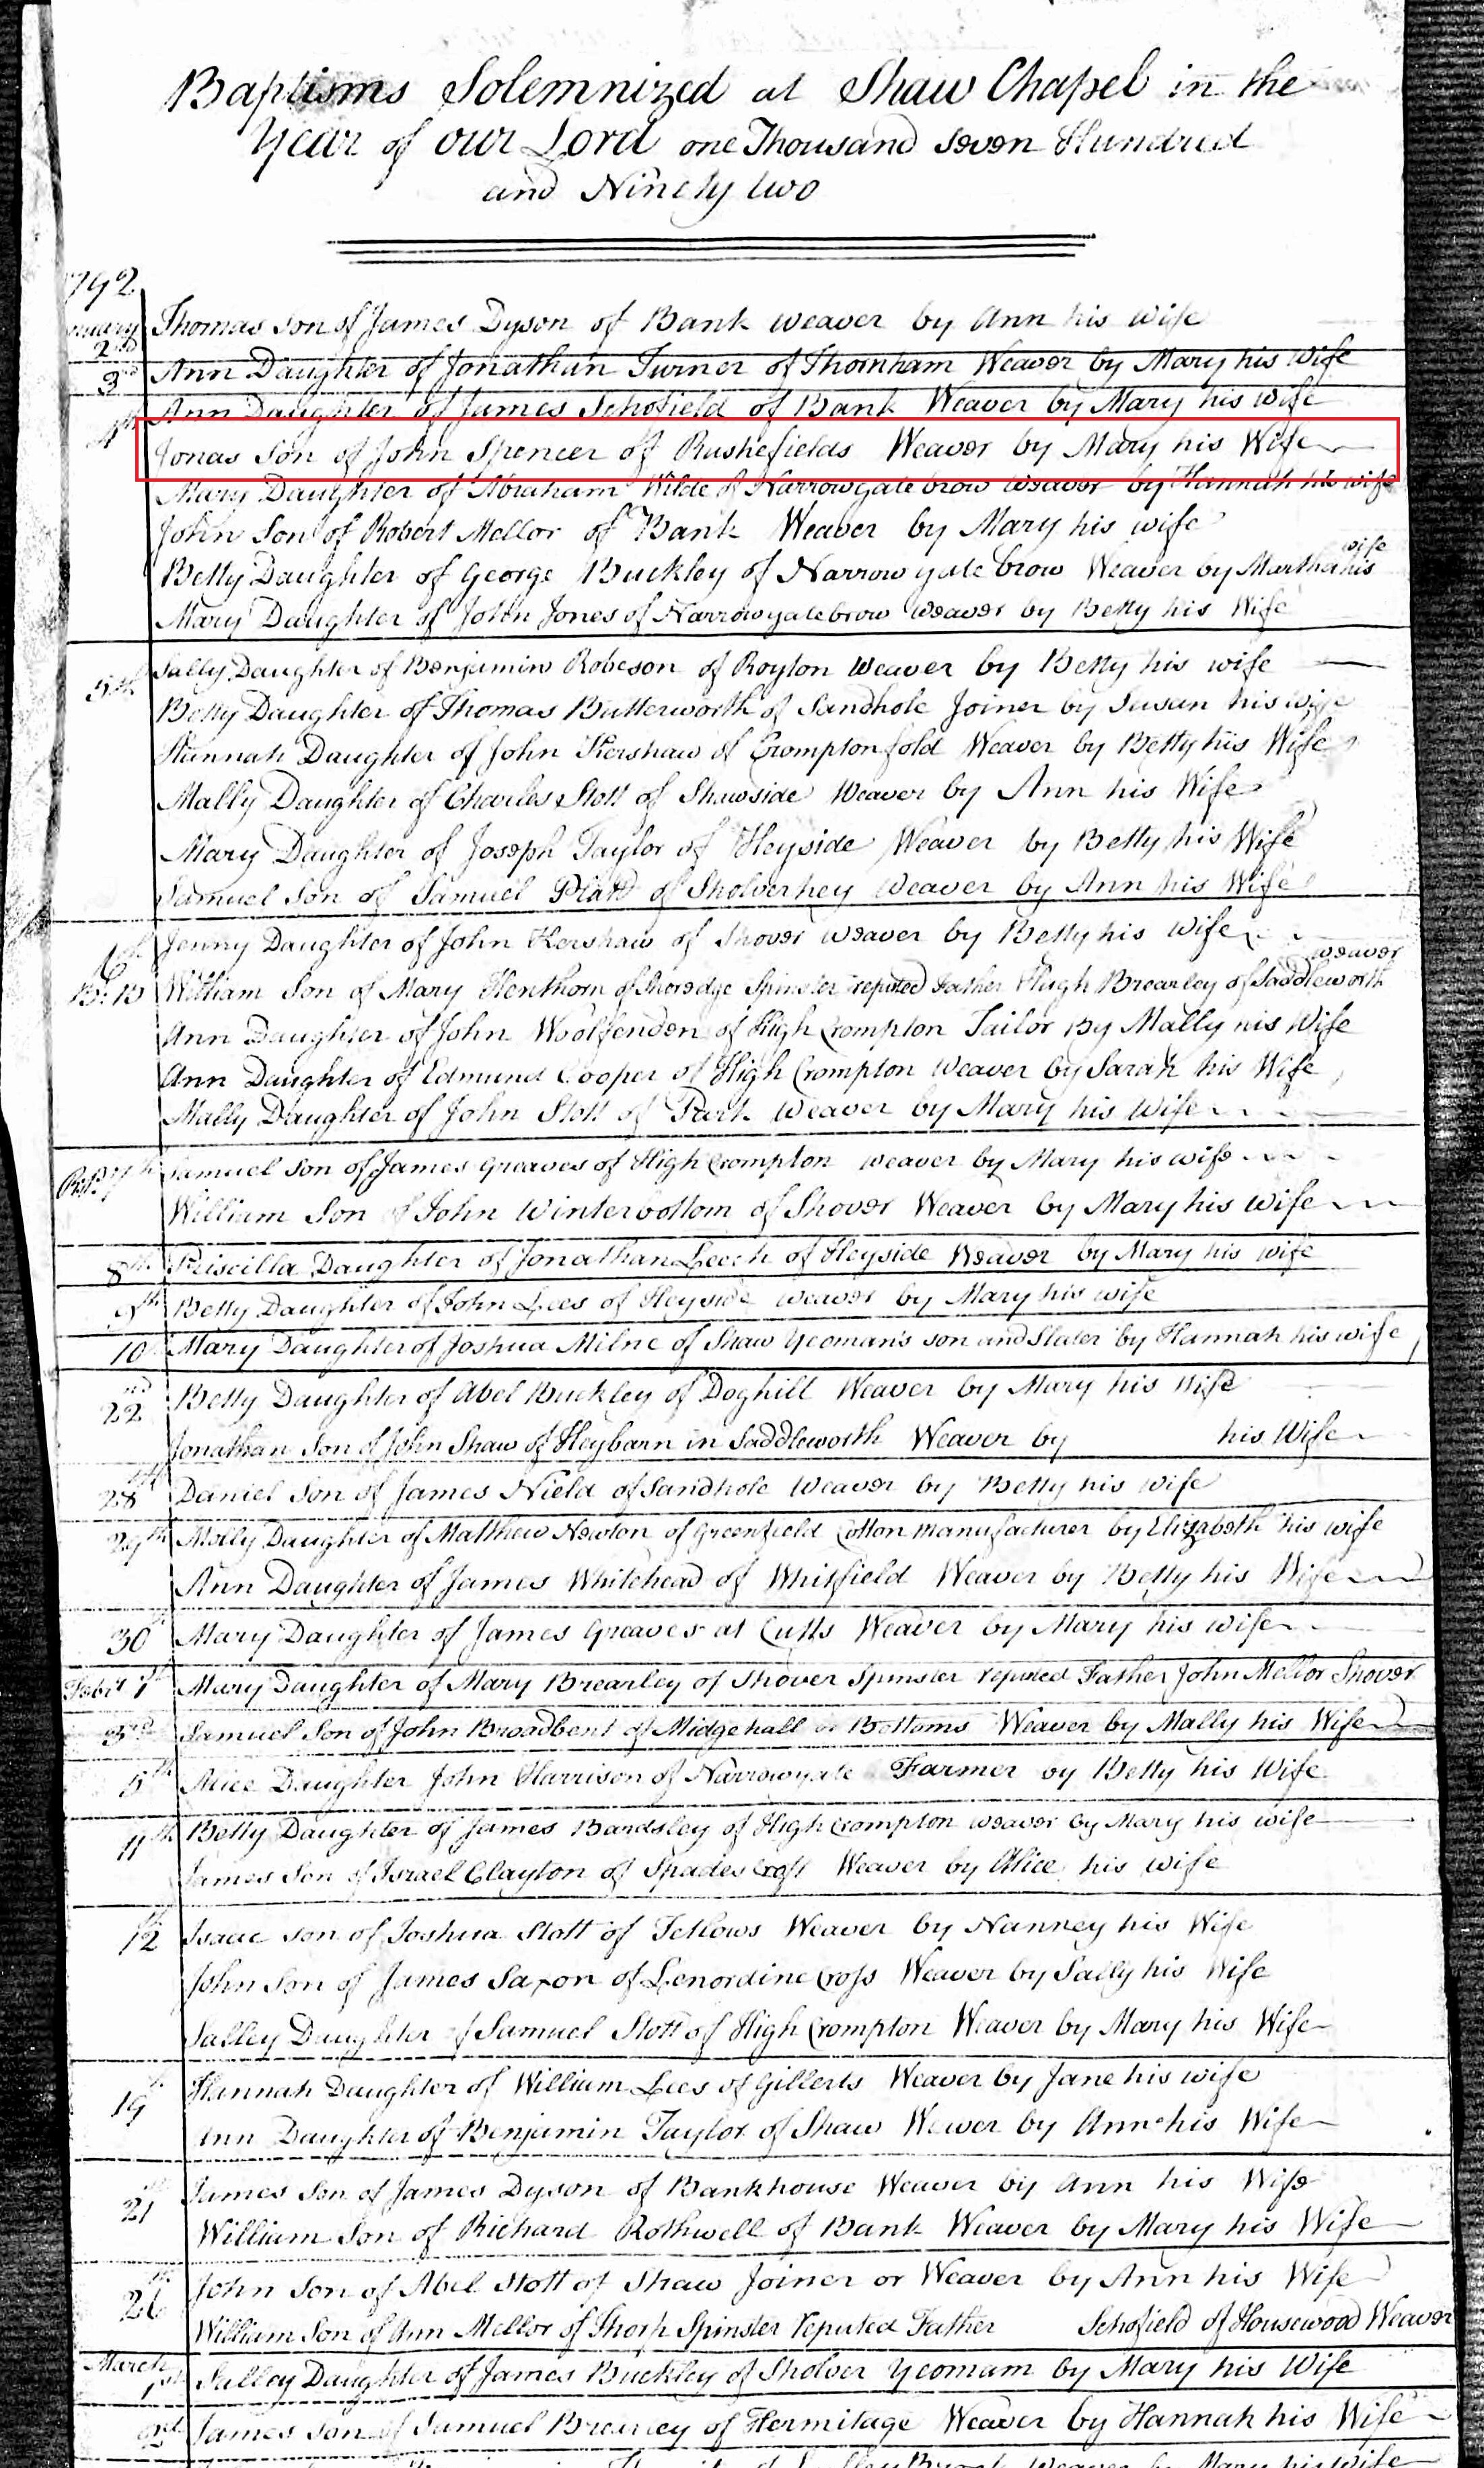 Baptisms Solemnized at Shaw Chapel in the
Year of our Lord one Thousand Seven Hundred
and Ninety two
792
Thomas Son of James Dyson of Bank Weaver by Ann his Wife
2nd
3rd Ann Daughter of Jonathan Turner of Thornham Weaver by Mary his Wife
4th Ann Daughter of James Schofield of Bank Weaver by Mary his Wife
Jonas Son of John Spencer of Rushefields Weaver by Mary his Wife
Mary Daughter of Abraham Wilde of Narrowgate brow Weaver by Hannah his wife
John Son of Robert Mellor of Bank Weaver by Mary his wife
Betty Daughter of George Buckley of Narrowgate brow Weaver by Martha his wife
Mary Daughter of John Jones of Narrowgatebrow Weaver by Betty his Wife
5th Sally Daughter of Benjamin Robeson of Royton Weaver by Betty his wife
Betty Daughter of Thomas Butterworth of Sandhole Joiner by Susan his Wife
Hannah Daughter of John Kershaw of Crompton fold Weaver by Betty his Wife
Mally Daughter of Charles Stott of Shawside Weaver by Ann his Wife
Mary Daughter of Joseph Taylor of Heyside Weaver by Betty his Wife
Samuel Son of Samuel Platt of Sholverhey Weaver by Ann his Wife
Jenny Daughter of John Kershaw of Shover Weaver by Betty his Wife
William Son of Mary Henthorn of Shoredge Spinster reputed Father Hugh Brearley of Saddleworth weaver
Ann Daughter of John Woolfenden of High Crompton Tailor By Mally his Wife
Ann Daughter of Edmund Cooper of High Crompton Weaver by Sarah his Wife
Mally Daughter of John Stott of Park Weaver by Mary his Wife
7th Samuel Son of James Greaves of High Crompton Weaver by Mary his wife
William Son of John Winterbottom of Shover Weaver by Mary his Wife
8th Priscilla Daughter of Jonathan Leech of Heyside Weaver by Mary his wife
9th Betty Daughter of John Lees of Heyside weaver by Mary his wife
10 Mary Daughter of Joshua Milne of Shaw Yeoman's son and Slater by Hannah his wife
22nd Betty Daughter of Abel Buckley of Doghill Weaver by Mary his Wife
Jonathan Son of John Shaw of Heybarn in Saddleworth Weaver by his Wife
28th Daniel Son of James Nield of Sandhole Weaver by Betty his wife
29th Molly Daughter of Matthew Newton of Greenfield Cotton manufacturer by Elizabeth his wife
Ann Daughter of James Whitehead of Whitfield Weaver by Betty his Wife
30 Mary Daughter of James Greaves at Cutts Weaver by Mary his wife
1st Mary Daughter of Mary Brearley of Shover Spinster reputed Father John Mellor Shover
3rd Samuel Son of John Broadbent of Midgehall or Bottoms Weaver by Mally his Wife
5th Alice Daughter John Harrison of Narrowgate Farmer by Betty his Wife
11th Betty Daughter of James Bardsley of High Crompton weaver by Mary his wife
James Son of Israel Clayton of Spades Croft Weaver by Alice his wife
12 Isaac Son of Joshua Stott of Fellows Weaver by Nanney his Wife
John Son of James Saxon of Lenordine Cross Weaver by Sally his Wife
Salley Daughter of Samuel Stott of High Crompton Weaver by Mary his Wife
19 Hannah Daughter of William Lees of Gillerts Weaver by Jane his wife
Ann Daughter of Benjamin Taylor of Shaw Wever by Ann his Wife
21 James Son of James Dyson of Bankhouse Weaver by Ann his Wife
William Son of Richard Rothwell of Bank Weaver by Mary his Wife
26 John Son of Abel Stott of Shaw Joiner or Weaver by Ann his Wife
William Son of Ann Mellor of Thorp Spinster reputed Father Schofield of Housewood Weaver
March 1st Salley Daughter of James Buckley of Sholver Yeomam by Mary his Wife
2nd James Son of Samuel Brearley of Hermitage Weaver by Hannah his Wife
Weaver by Mary his Wife